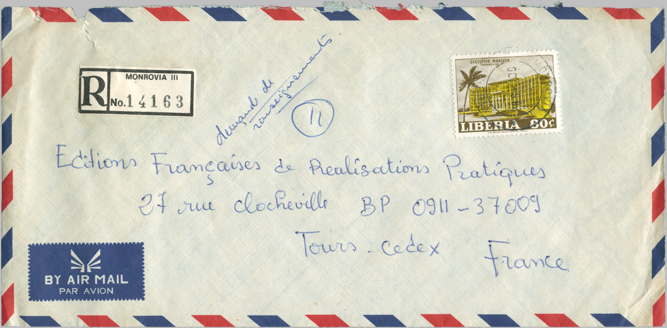 MONROVIA III
R No. 14163
demande de
renseignements.
11
EXECUTIVE MANSION
LIBERIA 80c
Editions Françaises de Realisations Pratiques
27 rue Clocheville BP 0911-37009
Tours-Cedex France
BY AIR MAIL
PAR AVION